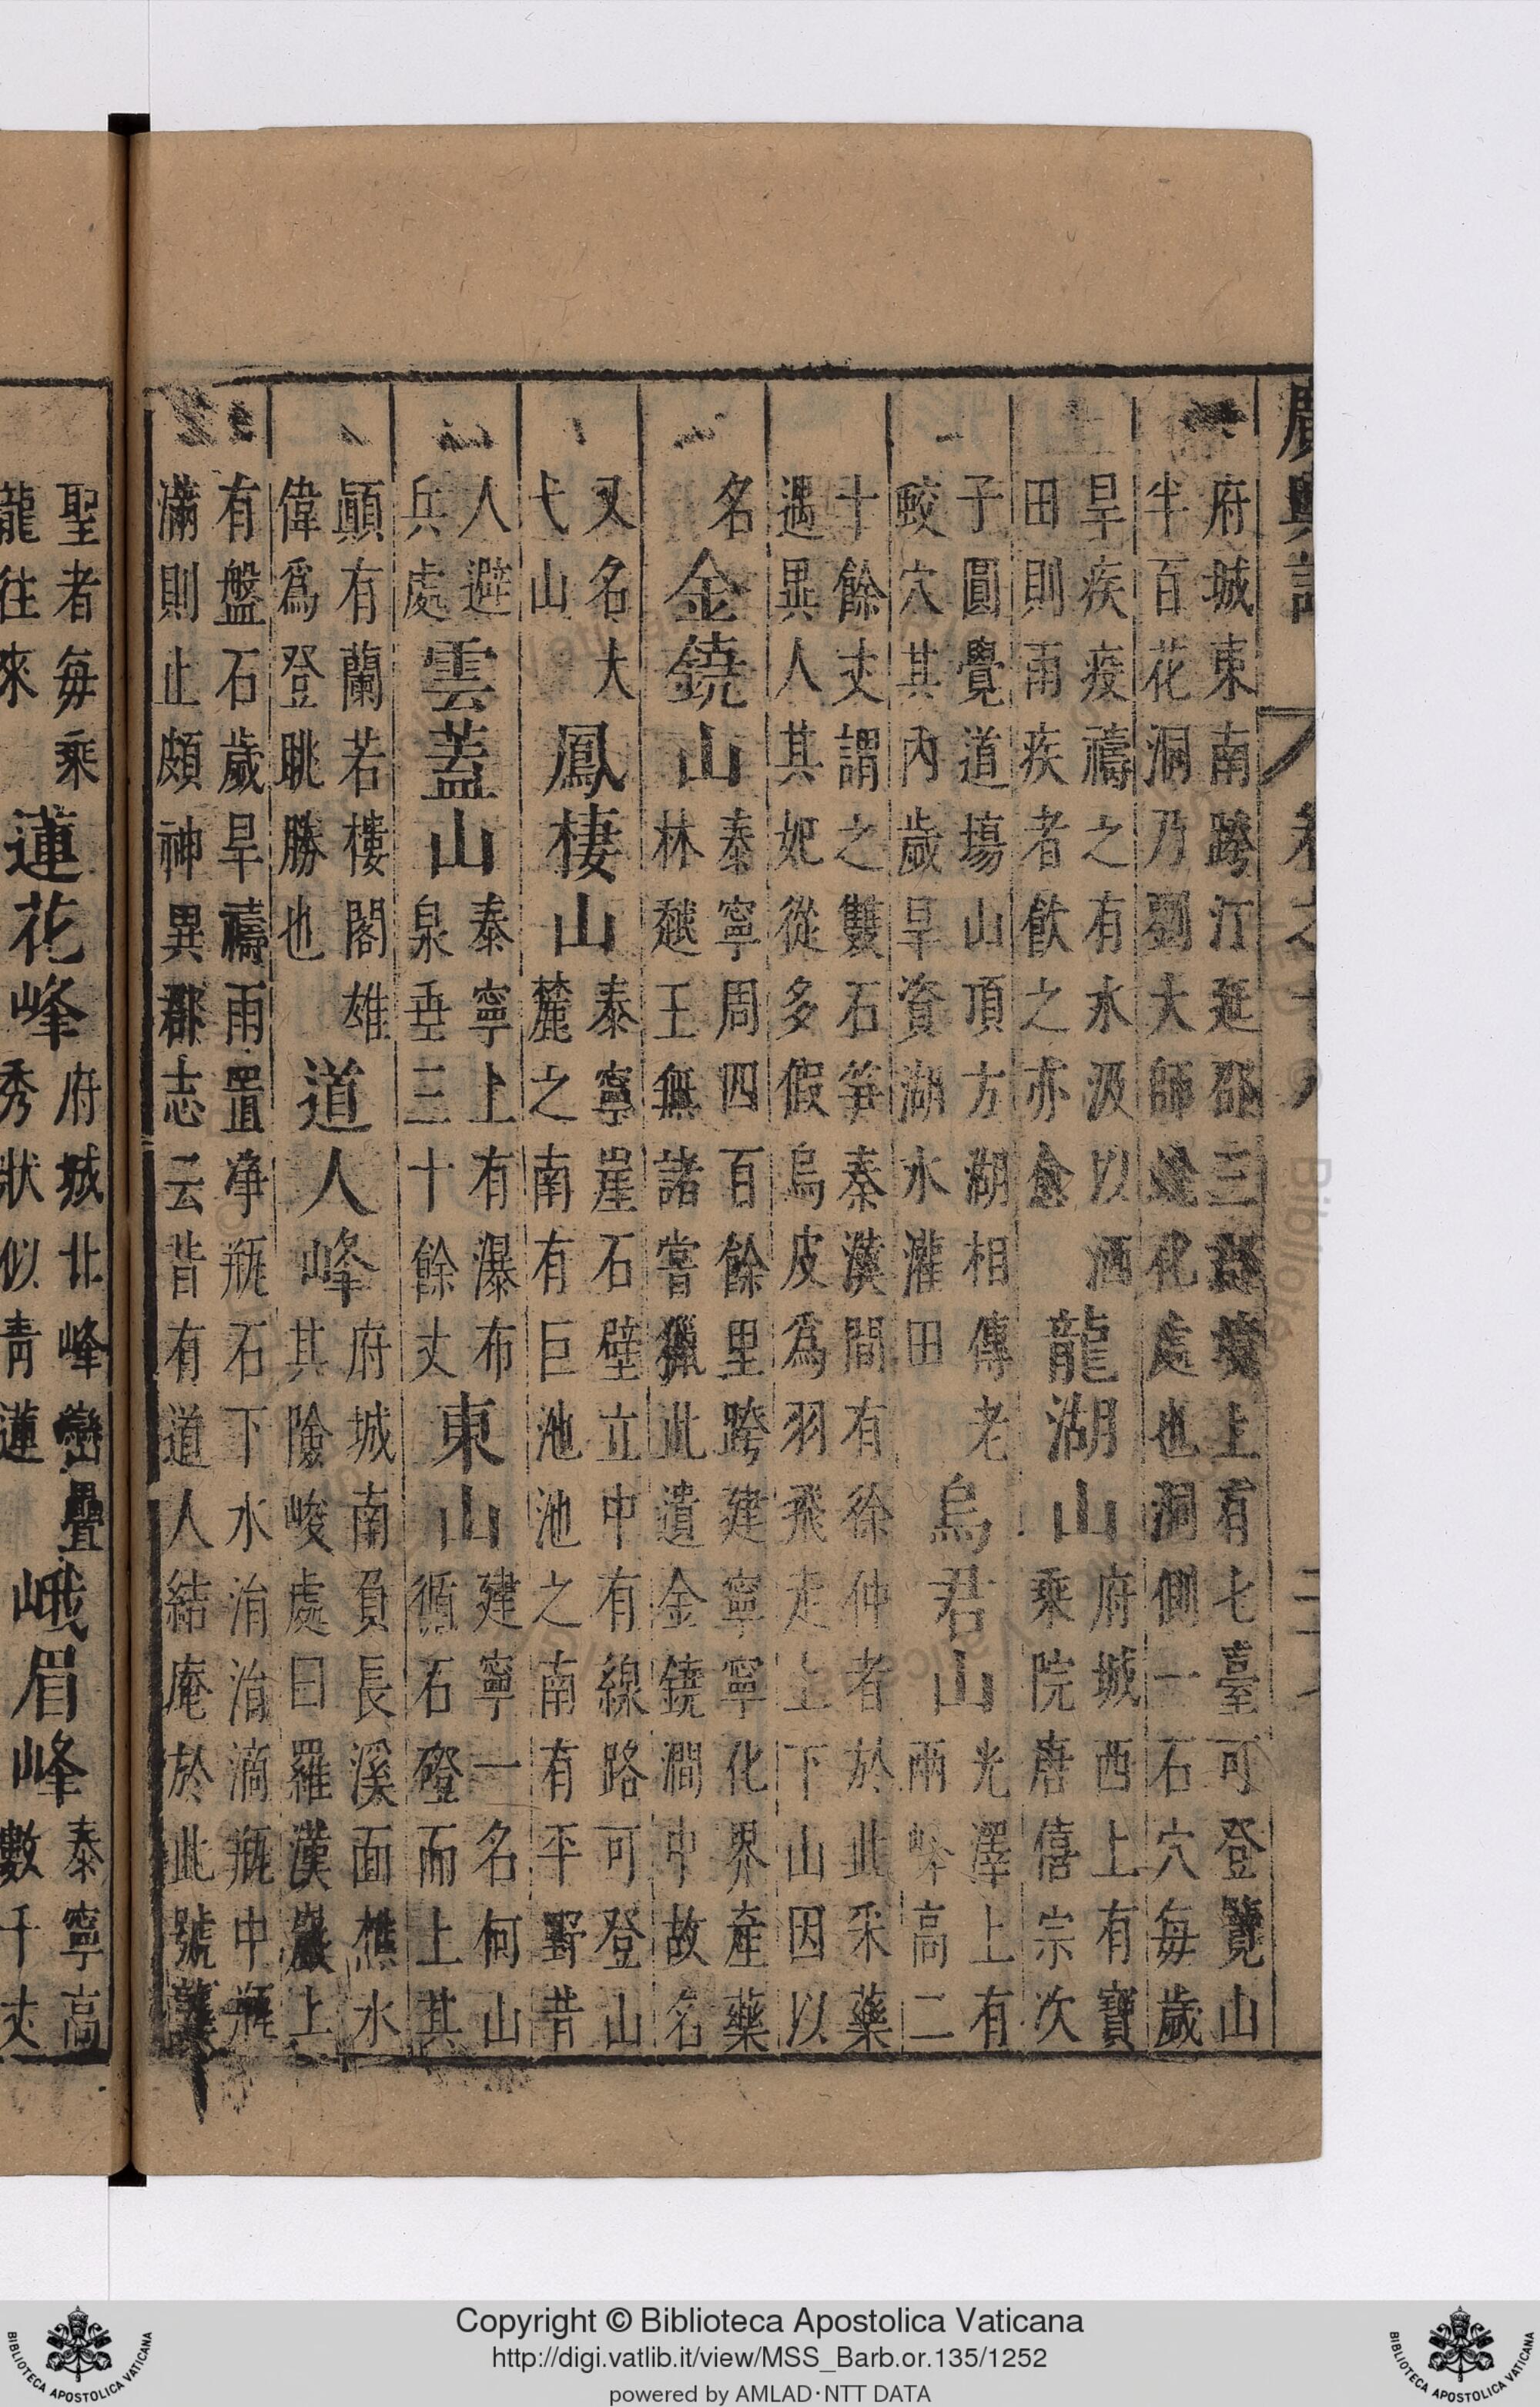 廣輿記
卷之十
府城東南跨江延邵三郡境上有七臺可登覽山
半百花洞乃劉大師蛻化處也洞側一石穴每歲
旱疾疫禱之有水汲以酒
田則雨疾者飲之亦愈
龍湖山
府城西上有寶
乘院唐僖宗次
子圓覺道場山頂方湖相傳老
蛟穴其內歲旱資湖水灌田
烏君山
光澤上有
兩峰高二
十餘丈謂之雙石笋秦漢間有徐仲者於此采藥
遇異人其妃從多假烏皮爲羽飛走上下山因以
名
金鐃山
泰寧周四百餘里跨建寧寧化界產藥
林越王無諸嘗獵此遺金鐃澗中故名
又名大
弋山
鳳棲山
泰寧崖石壁立中有線路可登山
麓之南有巨池池之南有平野昔
人避
兵處
雲蓋山
泰寧上有瀑布
泉垂三十餘丈
東山
建寧一名何山
循石磴而上其
顚有蘭若樓閣雄
偉爲登眺勝也
道人峰
府城南負長溪面樵水
其險峻處曰羅漢巖上
有盤石歲旱禱雨置净瓶石下水涓涓滴瓶中瓶
滿則止頗神異郡志云昔有道人結庵於此號漢
聖者每乘
龍往來
蓮花峰
府城北峰巒疊
秀狀似青蓮
峨眉峰
泰寧高
數千丈
Copyright © Biblioteca Apostolica Vaticana
http://digi.vatlib.it/view/MSS_Barb.or.135/1252
powered by AMLAD·NTT DATA
BIBLIOTECA APOSTOLICA VATICANA
BIBLIOTECA APOSTOLICA VATICANA